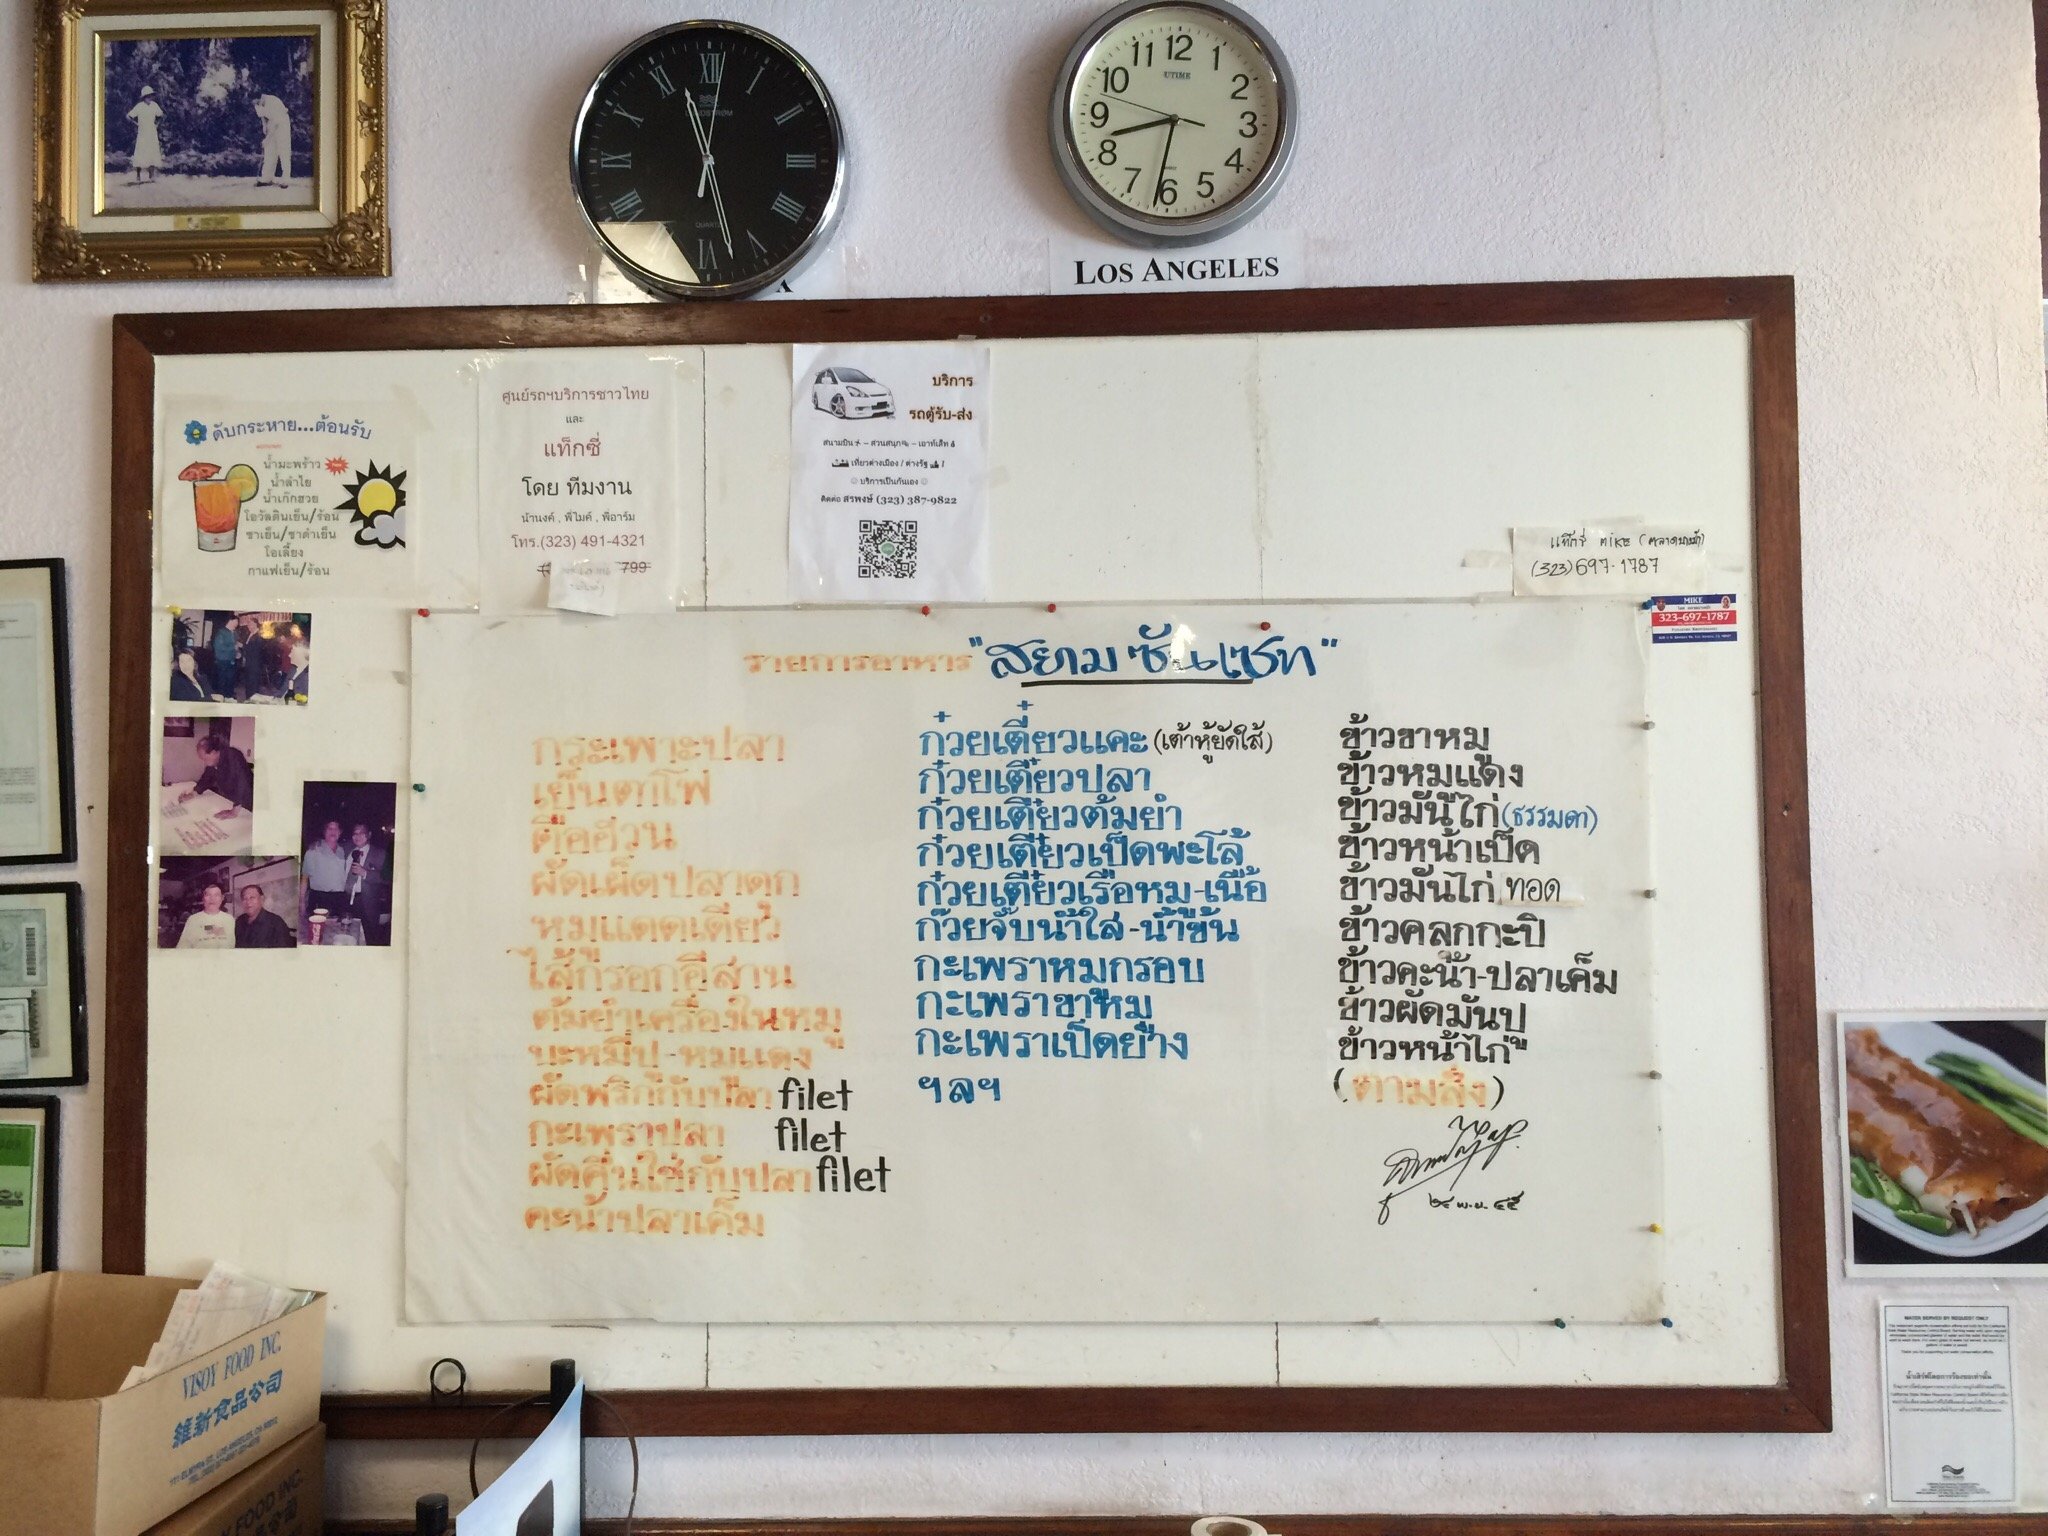 12
LOS ANGELES
UTIME
QUARTZ
ศูนย์รถฯบริการชาวไทย
และ
แท็กซี่
โดย ทีมงาน
น้านงค์ , พี่ไมค์ , พี่อาร์ม
โทร.(323) 491-4321
บริการ
รถตู้รับ-ส่ง
เที่ยวต่างเมือง / ต่างรัฐ
บริการเป็นกันเอง
ติดต่อ สรพงษ์ (323) 387-9822
ดับกระหาย...ต้อนรับ
น้ำมะพร้าว
น้ำลำไย
น้ำเก๊กฮวย
โอวัลตินเย็น/ร้อน
ชาเย็น/ชาดำเย็น
โอเลี้ยง
กาแฟเย็น/ร้อน
แท๊กซี่ MIKE
(323) 697-1787
MIKE
323-697-1787
รายการอาหาร "สยาม ซันเซ็ท"
กระเพาะปลา
เย็นตาโฟ
ตือฮวน
ผัดเผ็ดปลาดุก
หมูแดดเดียว
ไส้กรอกอีสาน
ต้มยำเครื่องในหมู
บะหมี่ปู-หมูแดง
ผัดพริกกับปลา filet
กะเพราปลา filet
ผัดคื่นไช่กับปลา filet
คะน้าปลาเค็ม
ก๋วยเตี๋ยวแคะ (เต้าหู้ยัดใส้)
ก๋วยเตี๋ยวปลา
ก๋วยเตี๋ยวต้มยำ
ก๋วยเตี๋ยวเป็ดพะโล้
ก๋วยเตี๋ยวเรือหมู-เนื้อ
ก๋วยจั๊บน้ำใส-น้ำข้น
กะเพราหมูกรอบ
กะเพราขาหมู
กะเพราเป็ดย่าง
ฯลฯ
ข้าวขาหมู
ข้าวหมูแดง
ข้าวมันไก่ (ธรรมดา)
ข้าวหน้าเป็ด
ข้าวมันไก่ ทอด
ข้าวคลุกกะปิ
ข้าวคะน้า-ปลาเค็ม
ข้าวผัดมันปู
ข้าวหน้าไก่
(ตามสั่ง)
๒๔ พ.ย. ๔๕
VISOY FOOD INC.
維新食品公司
FOOD INC.
WATER SERVED BY REQUEST ONLY
น้ำเสิร์ฟโดยการร้องขอเท่านั้น